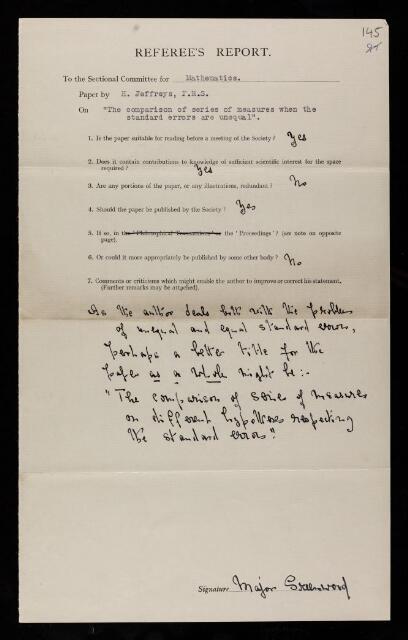 145
REFEREE'S REPORT.
To the Sectional Committee for Mathematics.
Paper by H. Jeffreys, F.R.S.
On "The comparison of series of measures when the
standard errors are unequal".
1. Is the paper suitable for reading before a meeting of the Society? Yes
2. Does it contain contributions to knowledge of sufficient scientific interest for the space
required? Yes
3. Are any portions of the paper, or any illustrations, redundant? No
4. Should the paper be published by the Society? Yes
5. If so, in the 'Philosophical Transactions' or the 'Proceedings'? (see note on opposite
page).
6. Or could it more appropriately be published by some other body? No
7. Comments or criticisms which might enable the author to improve or correct his statement.
(Further remarks may be attached).
As the author deals both with the problem
of unequal and equal standard errors,
perhaps a better title for the
paper as a whole might be:-
"The comparison of series of measures
on different hypotheses respecting
the standard errors."
Signature Major Greenwood